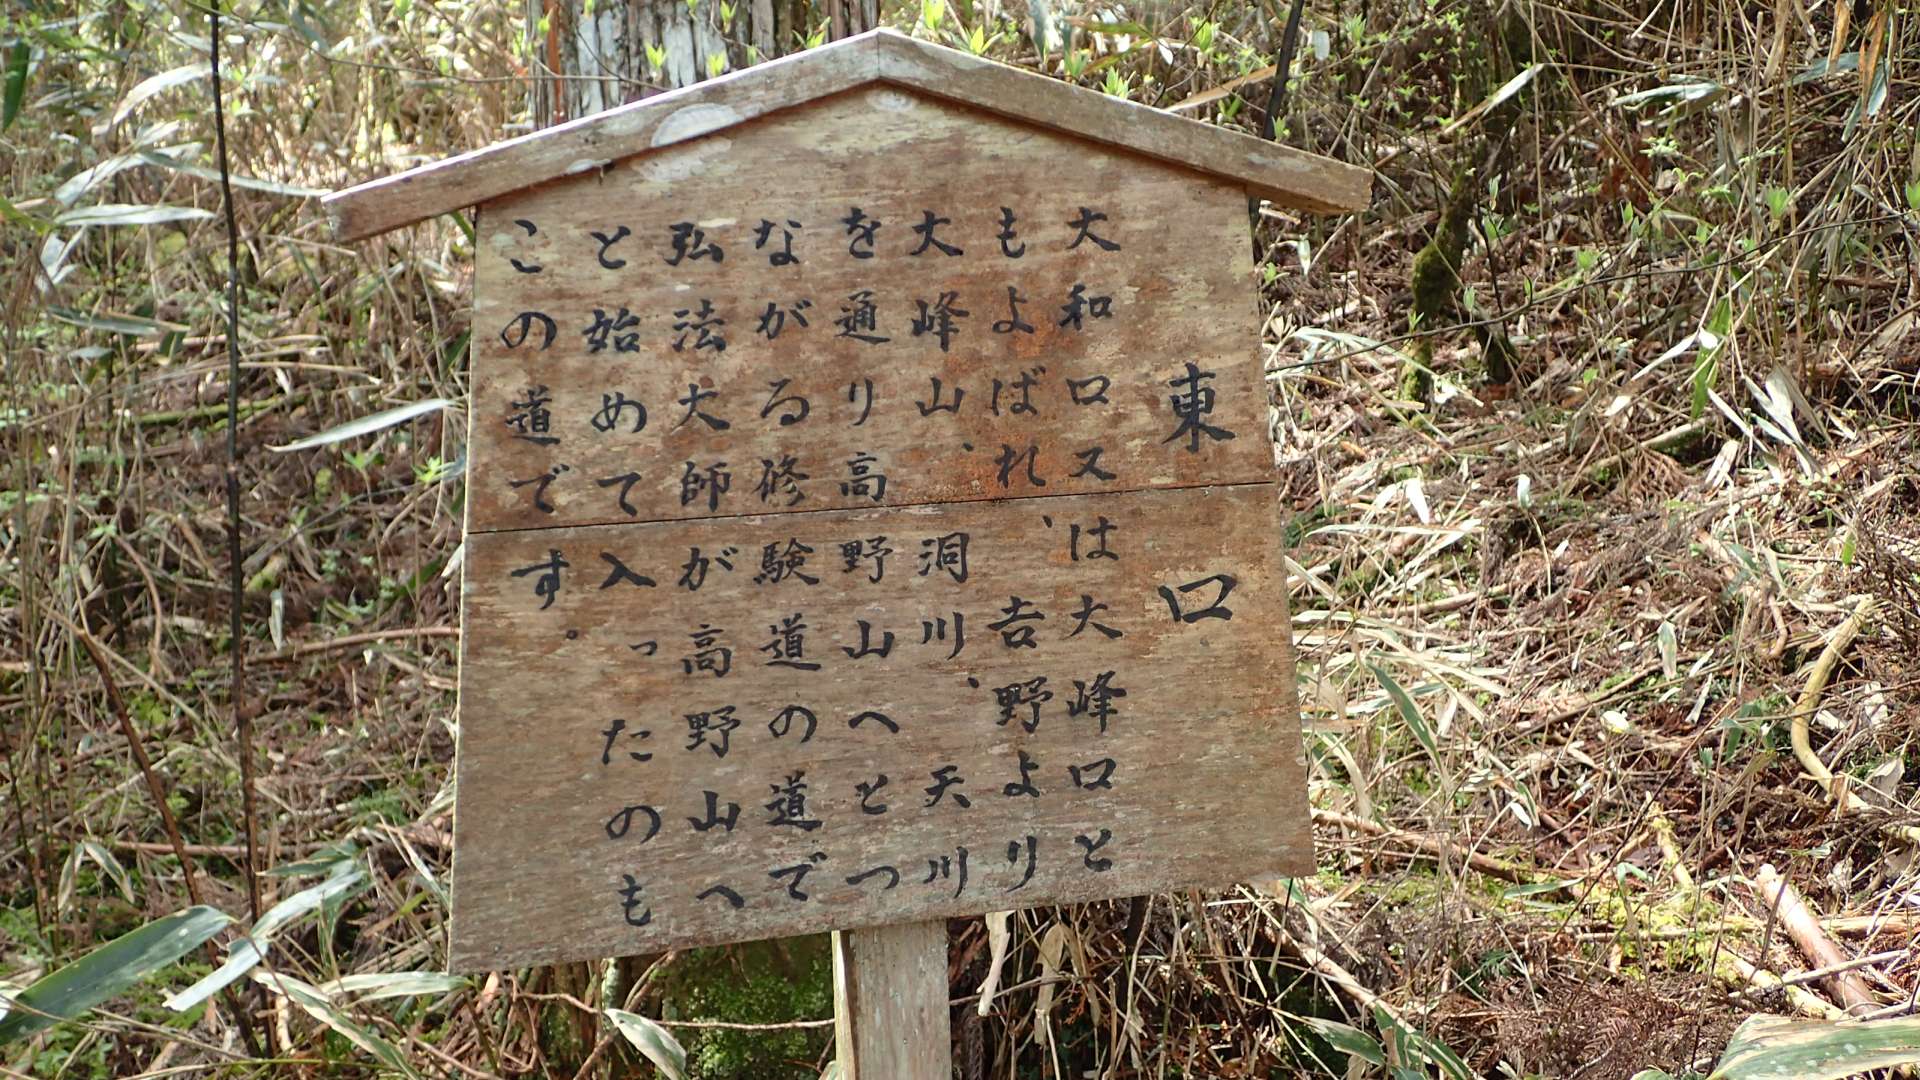 東口
大和口又は大峰口と
もよばれ、吉野より
大峰山、洞川、天川
を通り高野山へとつ
ながる修験道の道で
弘法大師が高野山へ
と始めて入ったのも
この道です。